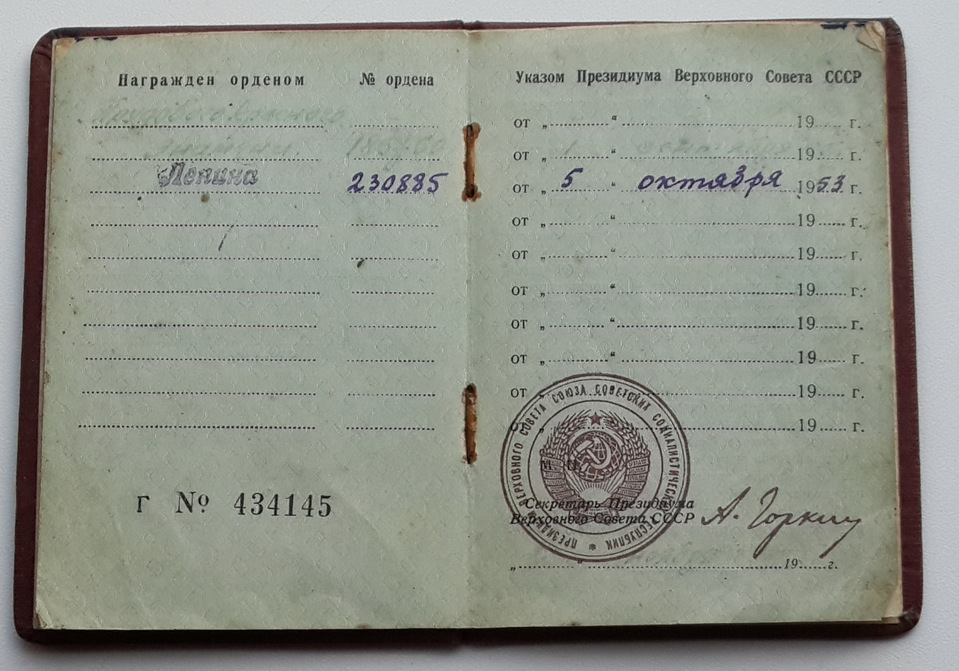 Награжден орденом № ордена
Трудового Красного
Знамени
Ленина 230885
г № 434145
Указом Президиума Верховного Совета СССР
от „ “ 19 г.
от „ “ 19 г.
от „ 5 “ октября 1953 г.
от „ “ 19 г.
от „ “ 19 г.
от „ “ 19 г.
от „ “ 19 г.
от „ “ 19 г.
от „ “ 19 г.
от „ “ 19 г.
ПРЕЗИДИУМ ВЕРХОВНОГО СОВЕТА СОЮЗА СОВЕТСКИХ СОЦИАЛИСТИЧЕСКИХ РЕСПУБЛИК
М. П.
Секретарь Президиума
Верховного Совета СССР А. Горкин
„ “ 19 г.